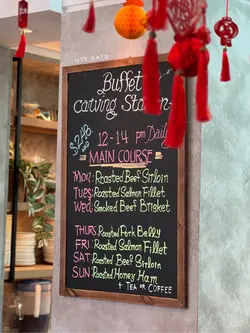 Buffet
Carving Station
12-14 pm Daily
MAIN COURSE
Mon: Roasted Beef Sirloin
TUES: Roasted Salmon Fillet
Wed: Smoked Beef Brisket
THURS: Roasted Pork Belly
FRI: Roasted Salmon Fillet
SAT: Roasted Beef Sirloin
SUN: Roasted Honey Ham
+ TEA OR COFFEE